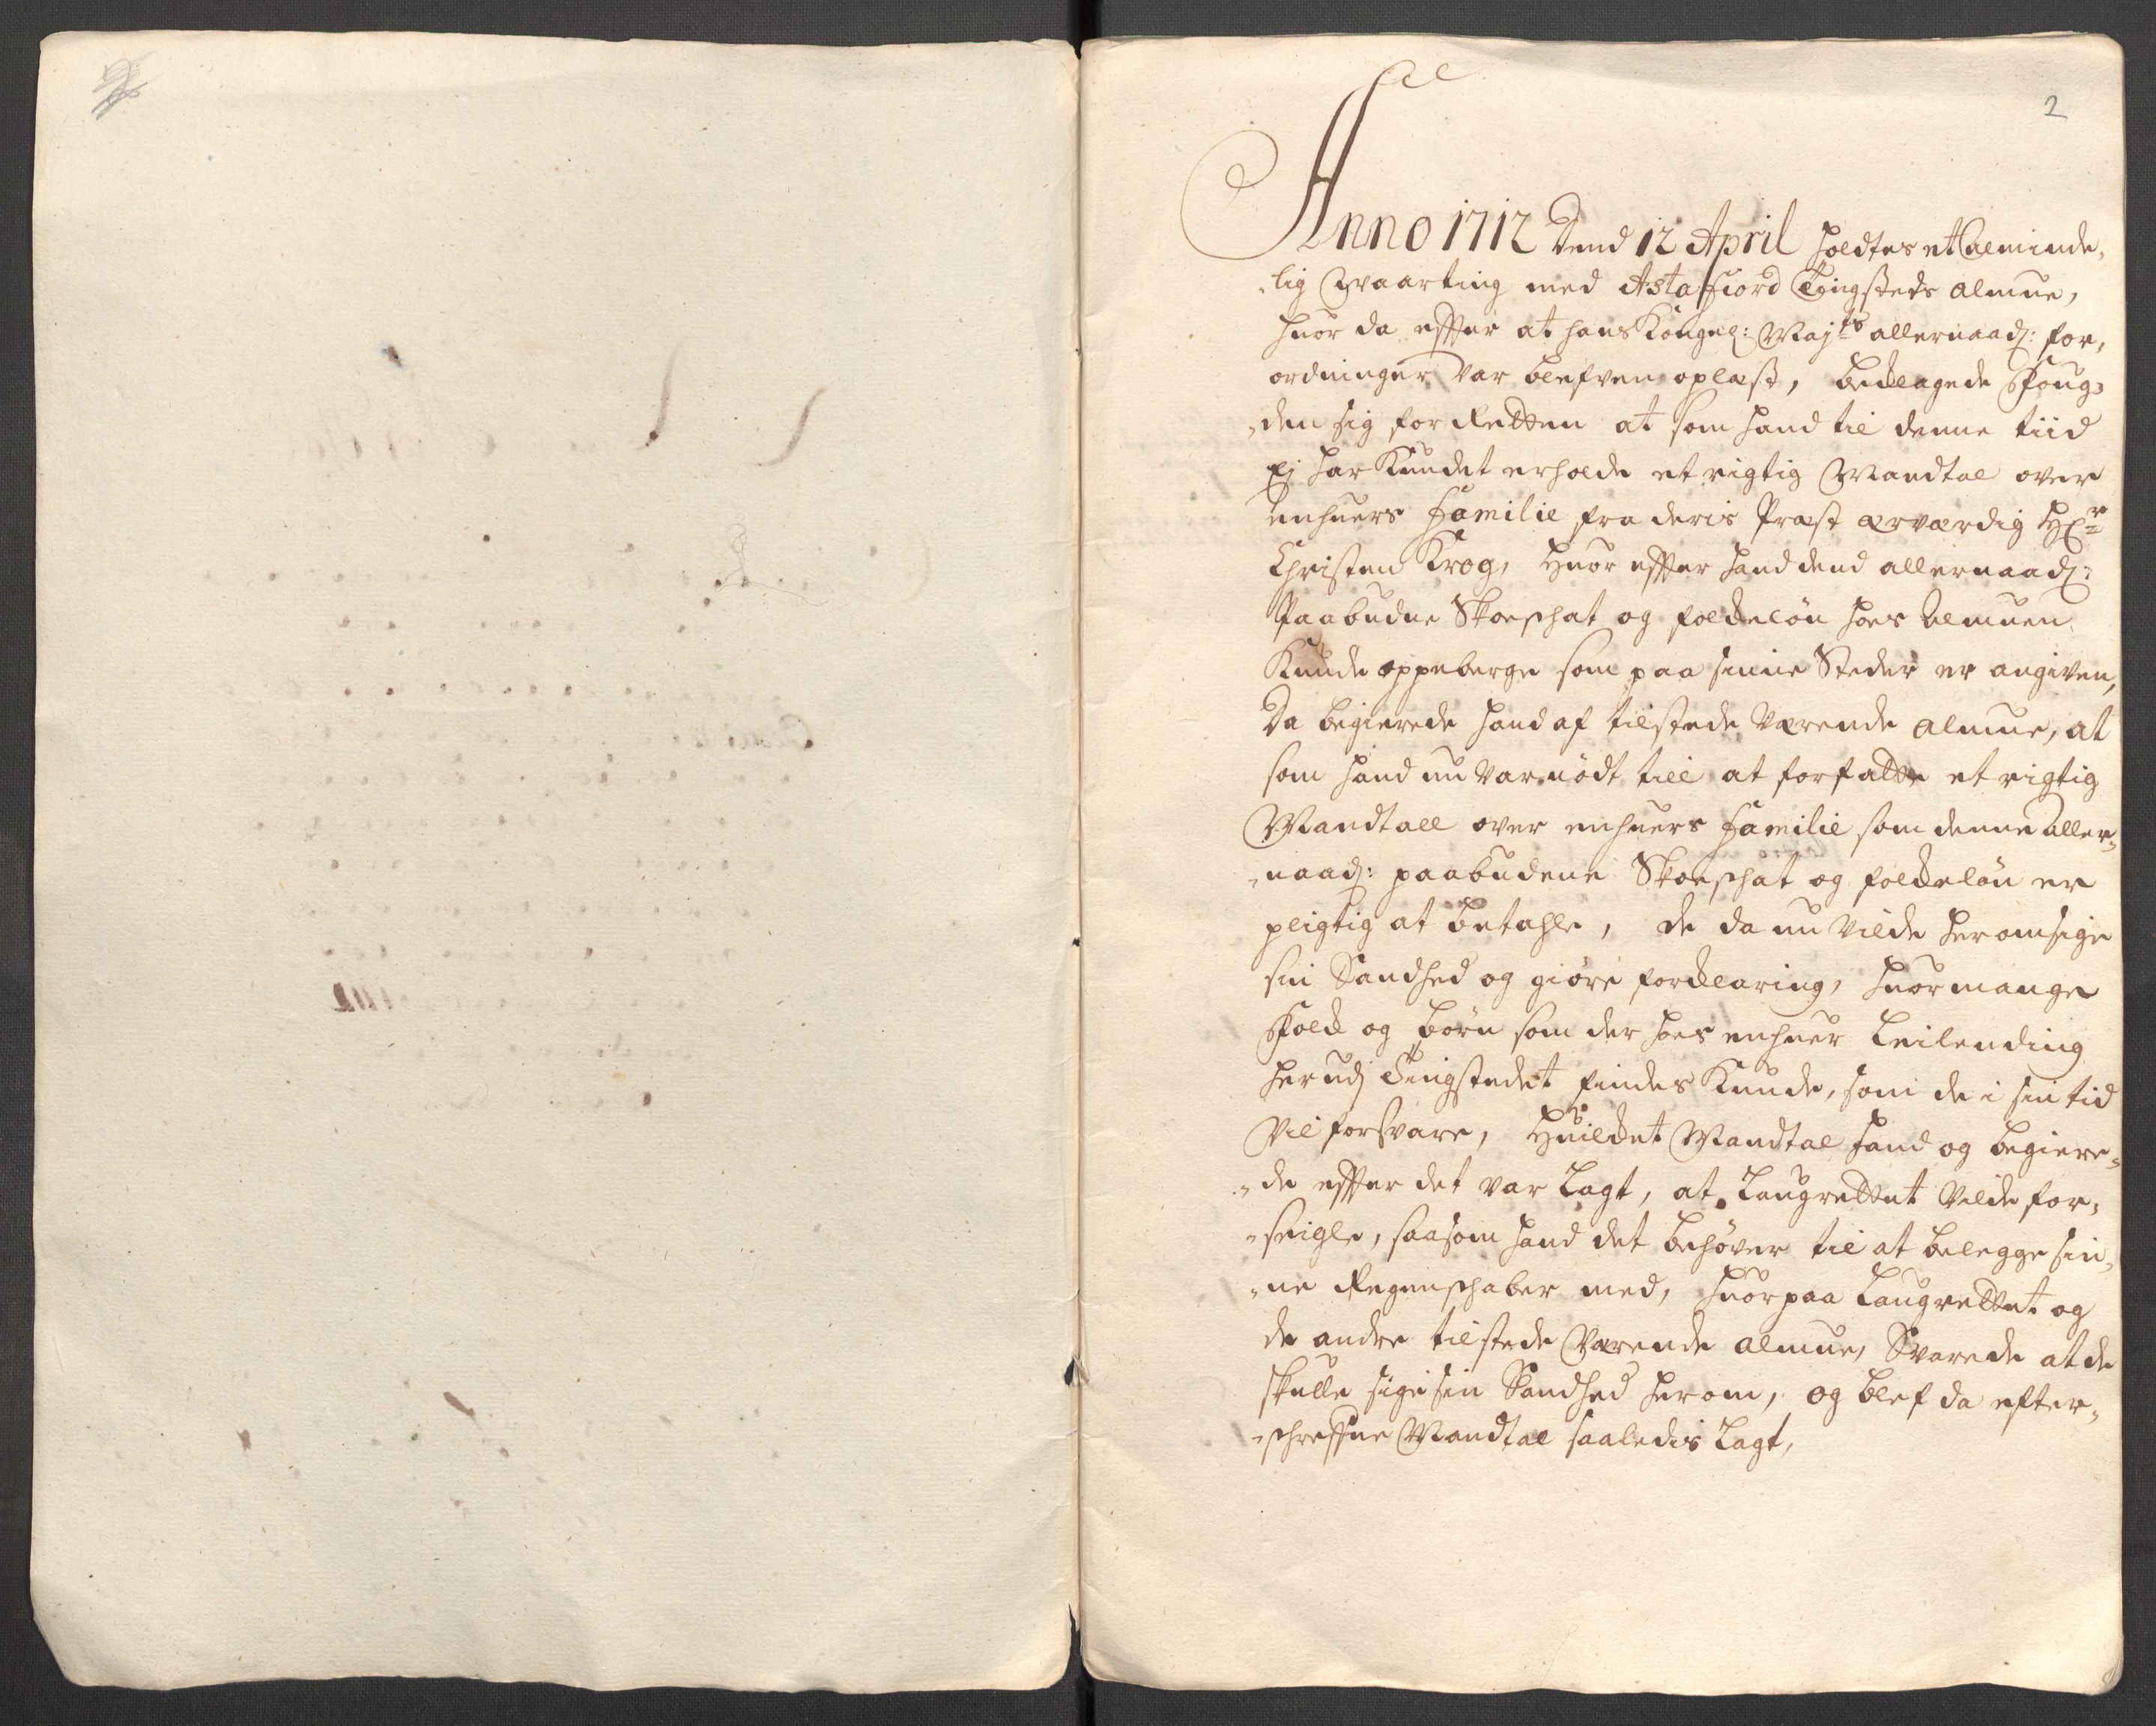 2
Anno 1712 Dend 12 April holdtes et Alminde,
,lig Waarting med Astafiord Tingsteds Almue,
huor da effter at hans Kongel: Maj:ts allernaad: for,
ordninger var blefven oplæst, beklagede Foug,
,den sig for Retten at som hand til denne tiid
Ej har Kundet erholde et rigtig Mandtal over
enhuers Familie fra deris Præst ærværdig Hr
Christen Krog, Huor effter hand dend allernaad:
Paabudne Skoeschat og folkeløn hoes Almuen
Kunde oppeberge som paa sinne Steder er angiven,
Da begierede hand af tilstede Værende Almue, at
som hand nu var nødt till at forfatte et rigtig
Mandtall over enhuers Familie som denne aller,
,naad: paabudene Skoeschat og folkeløn er
pligtig at betahle, de da nu vilde her om sige
sin Sandhed og giøre forklaring, huor mange
Folk og børn som der hoes enhuer Leilending
her udj Tingstedet findes Kunde, som de i sin tid
vil forsvare, Huilket Mandtal hand og begiere,
,de effter det var Lagt, at Laugrettet vilde for,
,seigle, saasom hand det behøver til at belegge sin,
,ne Regenschaber med, huorpaa Laugrettet og
de andre tilstede Værende Almue, Svarede at de
skulle sige sin Sandhed her om, og blef da efter,
,schreffne Mandtal saaledis Lagt,